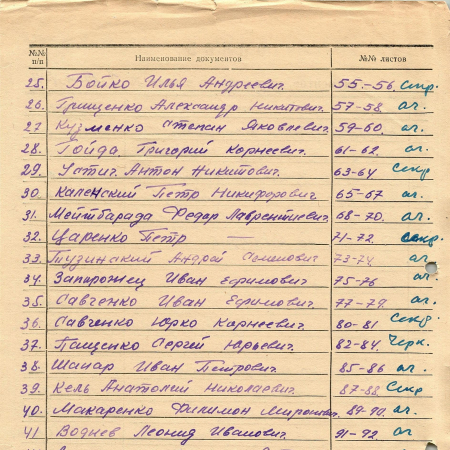 №№ п/п Наименование документов №№ листов
25. Бойко Илья Андреевич. 55.-56. секр.
26. Грищенко Александр Никитович 57-58. аг.
27 Кузменко Степан Яковлевич. 59-60. аг.
28. Гойда Григорий Корнеевич. 61-62. аг.
29. Усатич. Антон Никитович. 63-64 Секр
30. Каленский Петр Никифорович 65-67 аг.
31. Мейтбарада Федор Лаврентиевич. 68-70. аг.
32. Царенко Петр — 71-72. секр.
33. Тузинский Андрей Семенович 73-74. аг
34. Запирожец Иван Ефимович. 75-76 аг.
35. Савченко Иван Ефимович. 77-79. аг.
36. Савченко Юрко Карнеевич. 80-81 Секр.
37. Пащенко Сергей Юрьевич. 82-84. Черк.
38. Шапар Иван Петрович. 85-86 аг.
39. Кель Анатолей Николаевич. 87-88. Секр
40. Макаренко Филимон Миронович. 89-90. аг.
41 Воднев Леонид Иванович. 91-92. аг